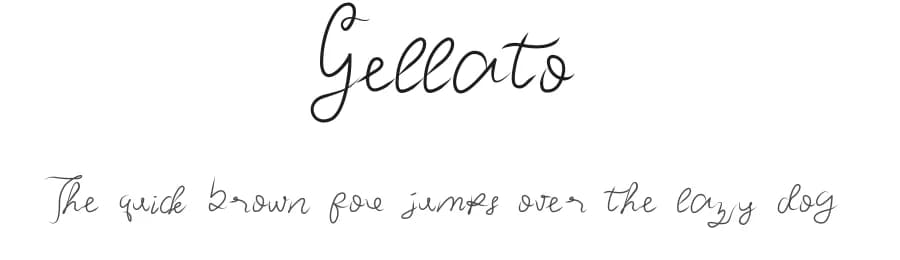 Gellato
The quick brown fox jumps over the lazy dog